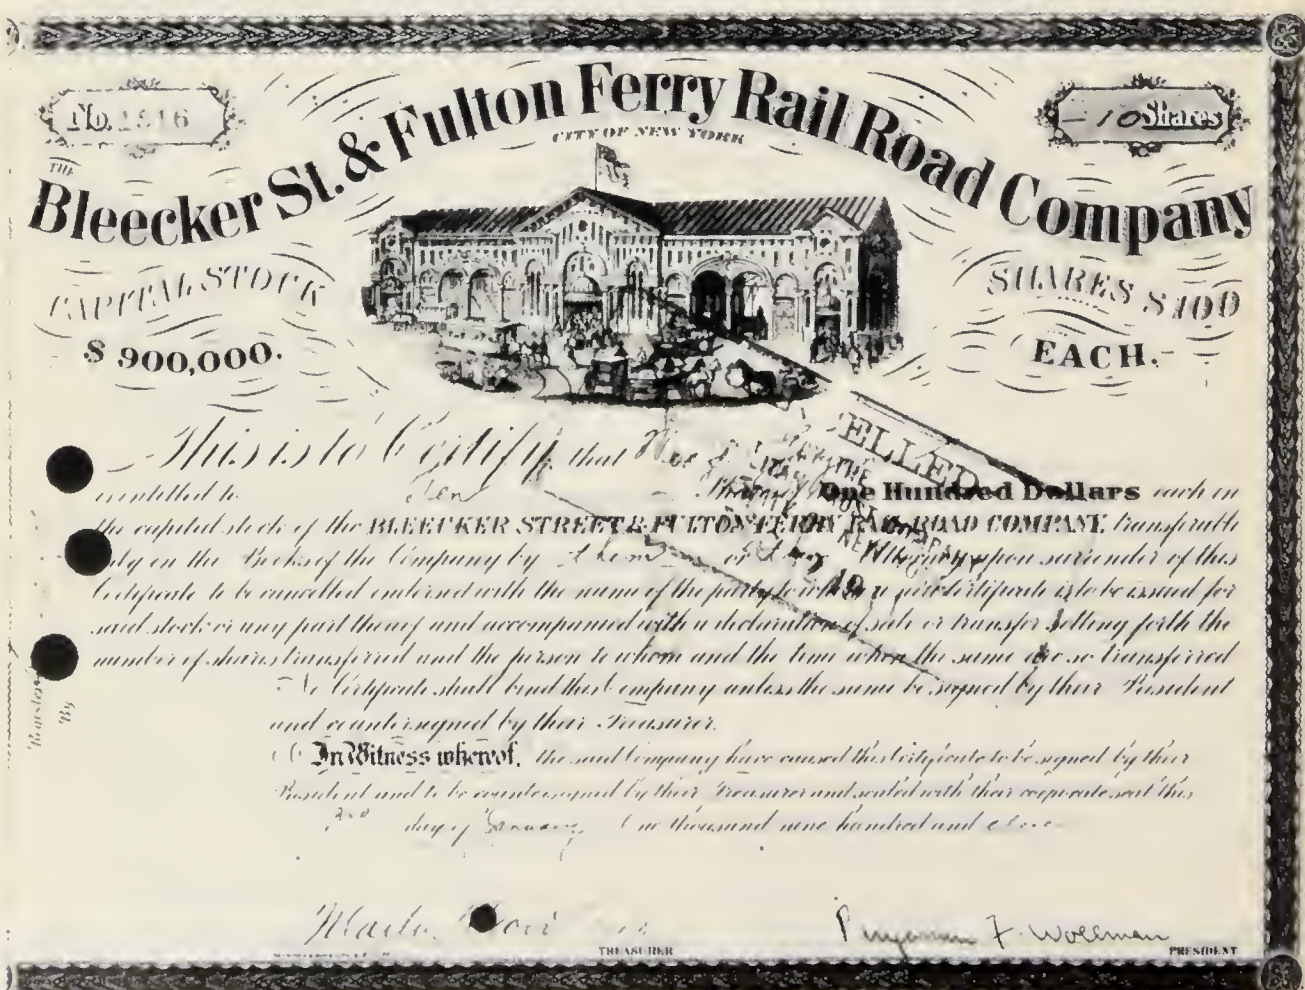 No. 1516
-10 Shares
THE
Bleecker St. & Fulton Ferry Rail Road Company
CITY OF NEW YORK
CAPITAL STOCK
$ 900,000.
SHARES $100
EACH.
This is to Certify that
is entitled to Ten One Hundred Dollars each in
the capital stock of the BLEECKER STREET & FULTON FERRY RAIL ROAD COMPANY, transferable
only on the Books of the Company by them or Attorney upon surrender of this
Certificate to be cancelled endorsed with the name of the party to whom a new certificate is to be issued for
said stock or any part thereof and accompanied with a declaration of sale or transfer setting forth the
number of shares transferred and the person to whom and the time when the same are so transferred
No Certificate shall bind this Company unless the same be signed by their President
and countersigned by their Treasurer.
In Witness whereof, the said Company have caused this Certificate to be signed by their
President and to be countersigned by their Treasurer and sealed with their corporate seal this
3rd day of January One thousand nine hundred and
ELLED
19
By
F. Wollman
TREASURER
PRESIDENT